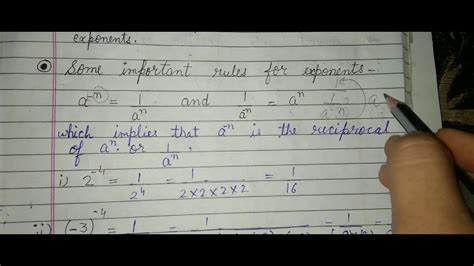 exponents.
Some important rules for exponents-
a⁻ⁿ = 1/aⁿ and 1/aⁿ = aⁿ 1/a⁻ⁿ a
which implies that a⁻ⁿ is the reciprocal
of aⁿ or 1/aⁿ
i) 2⁻⁴ = 1/2⁴ = 1/(2×2×2×2) = 1/16
ii) (-3)⁻⁴ = 1 = 1 = 1